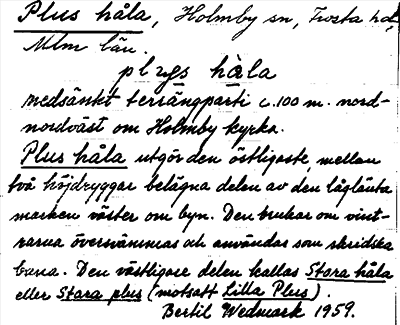 Plus håla, Holmby sn, Frosta hd,
Mlm län.
plųs hàla
nedsänkt terrängparti c. 100 m. nord-
nordväst om Holmby kyrka.
Plus håla utgör den östligaste, mellan
två höjdryggar belägna delen av den låglänta
marken väster om byn. Den brukar om vint-
rarna översvämmas och användas som skridsko
bana. Den västligare delen kallas Stora håla
eller Stora plus (motsatt Lilla Plus).
Bertil Wedmark 1959.